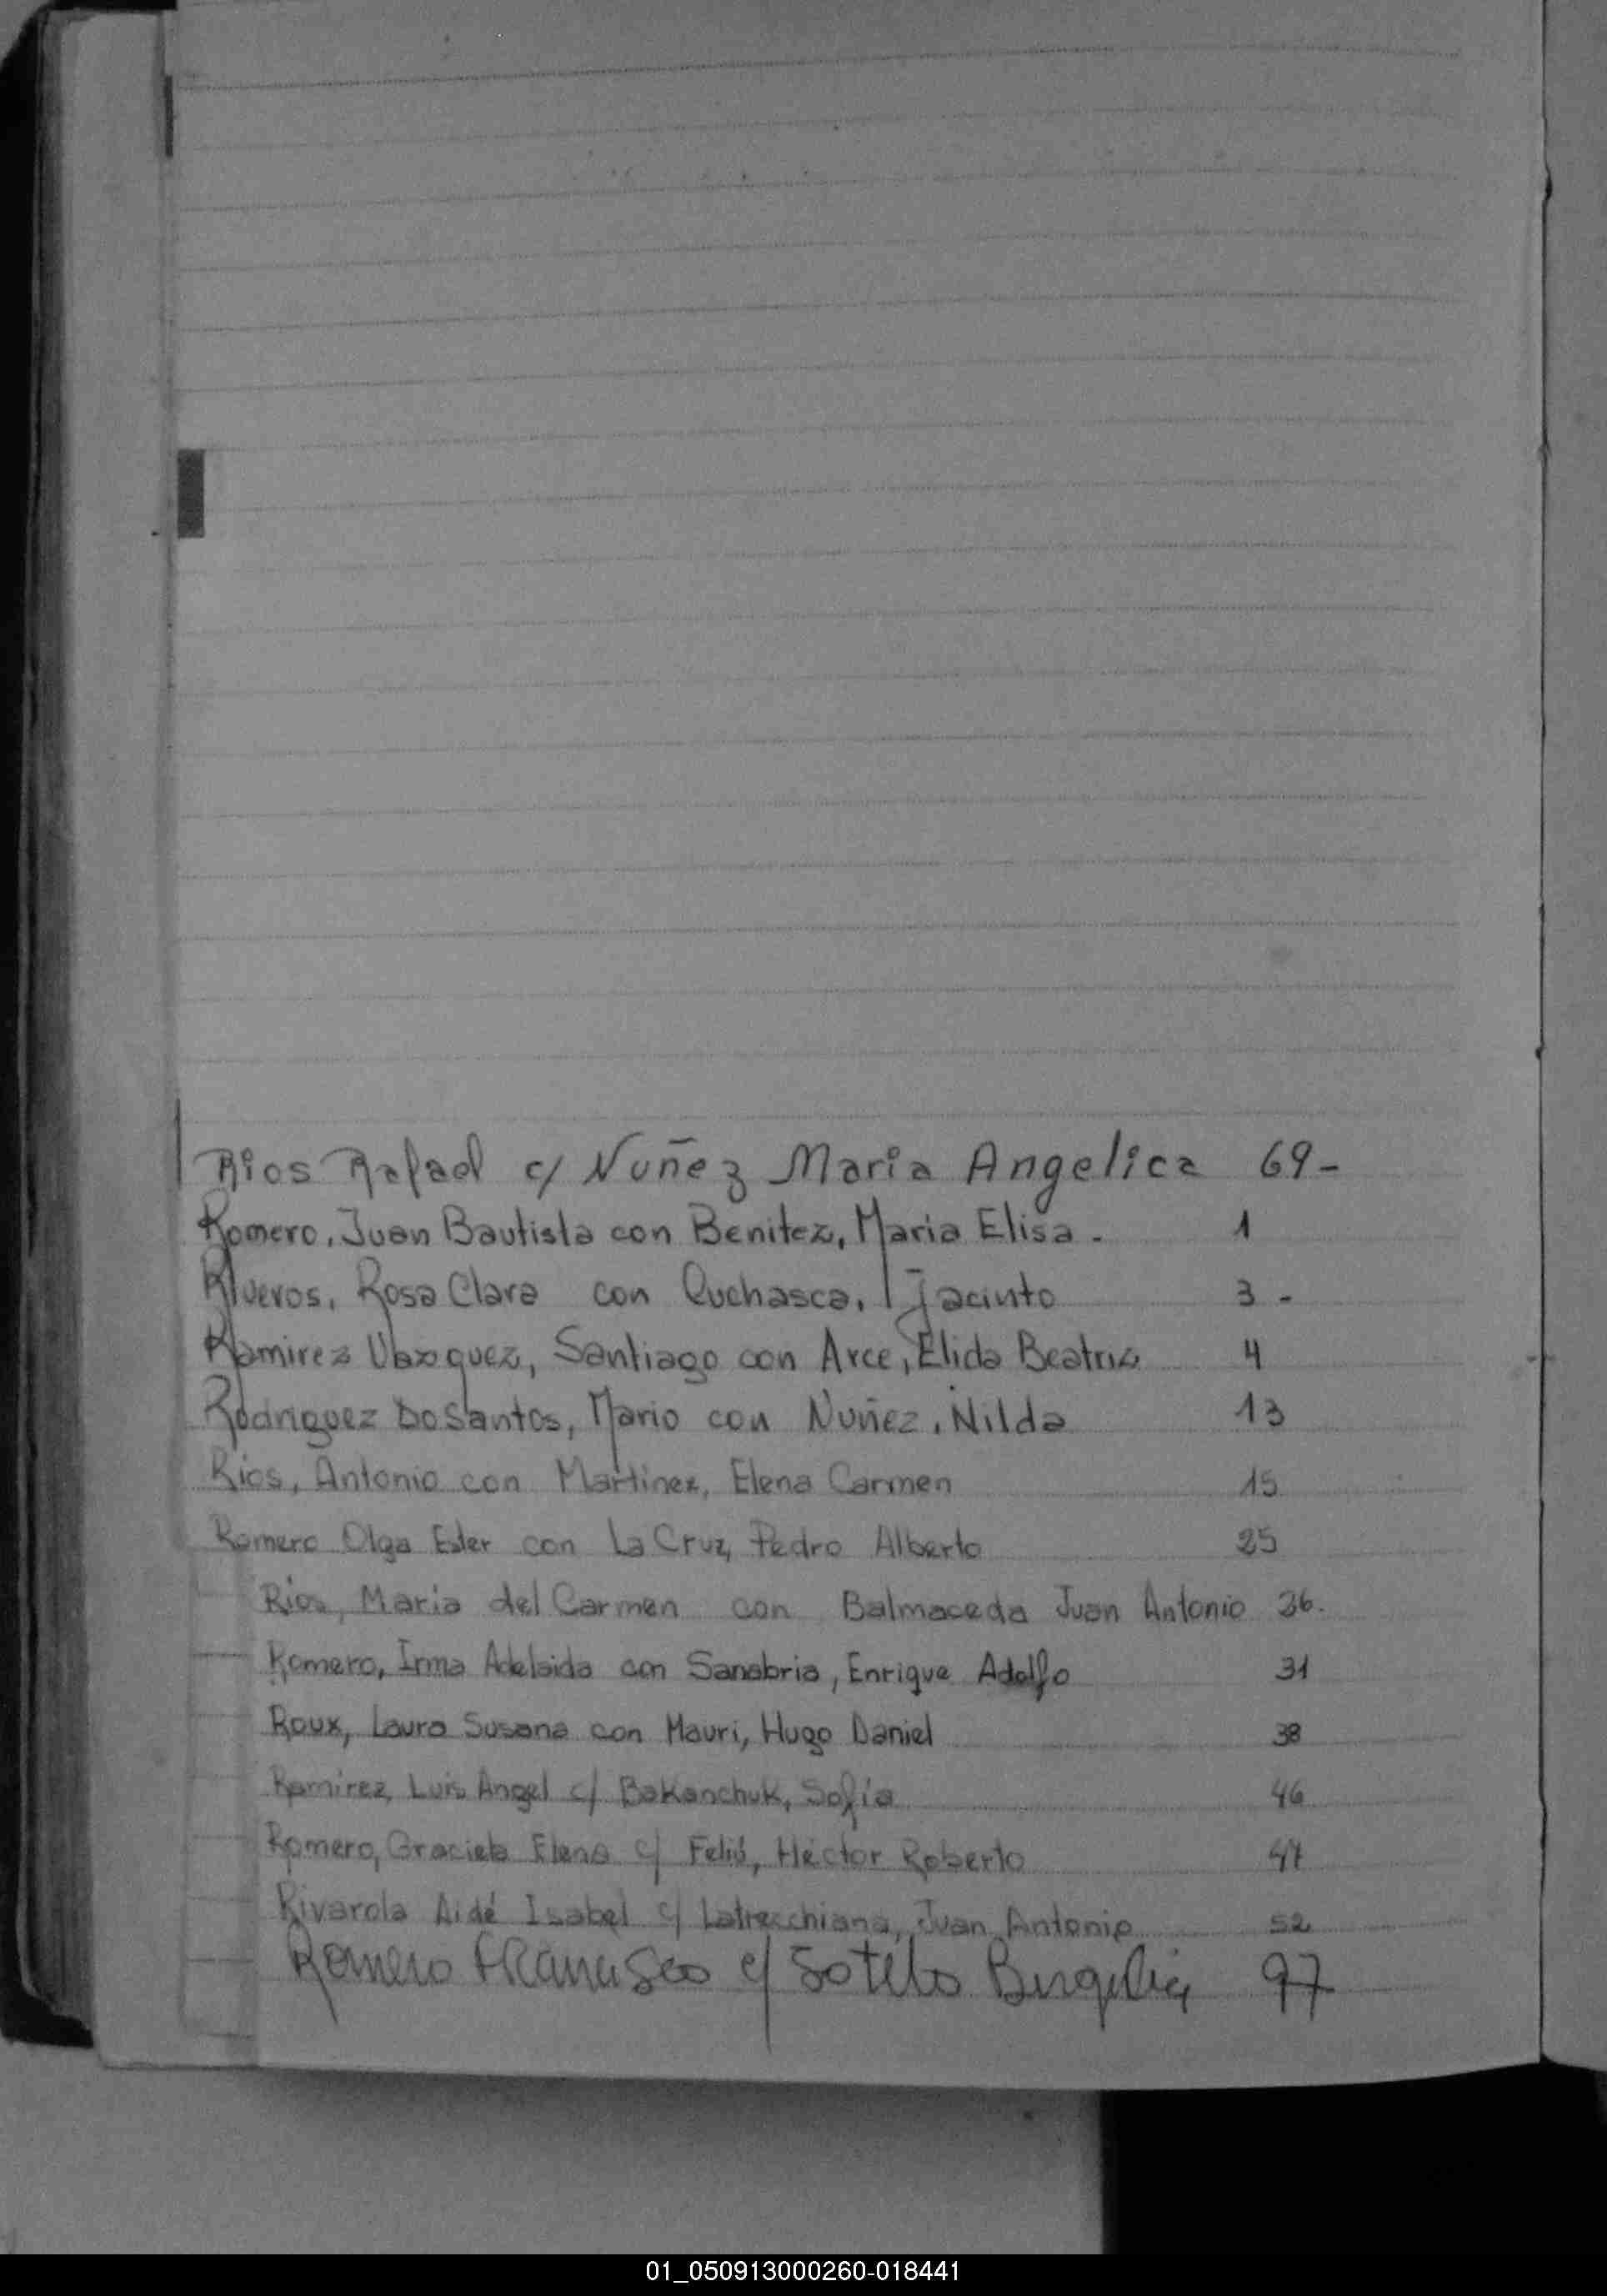 Rios Rafael c/ Nuñez Maria Angelica 69-
Romero, Juan Bautista con Benitez, Maria Elisa. 1
Riveros, Rosa Clara con Quchasca, Jacinto 3-
Ramirez Vazquez, Santiago con Arce, Elida Beatriz 4
Rodriguez DoSantos, Mario con Nuñez, Nilda 13
Rios, Antonio con Martinez, Elena Carmen 15
Romero Olga Ester con La Cruz, Pedro Alberto 25
Rios, Maria del Carmen con Balmaceda Juan Antonio 36.
Romero, Irma Adelaida con Sanabria, Enrique Adolfo 31
Roux, Laura Susana con Mauri, Hugo Daniel 38
Ramirez, Luis Angel c/ Bakanchuk, Sofía 46
Romero, Graciela Elena c/ Feliú, Héctor Roberto 47
Rivarola Aidé Isabel c/ Latrecchiana, Juan Antonio 52
Romero Francisco c/ Sotelo 97
01_050913000260-018441